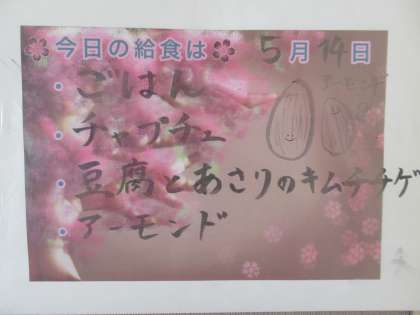 今日の給食は 5月14日
アーモンド
・ごはん
・チャプチェ
・豆腐とあさりのキムチチゲ
・アーモンド